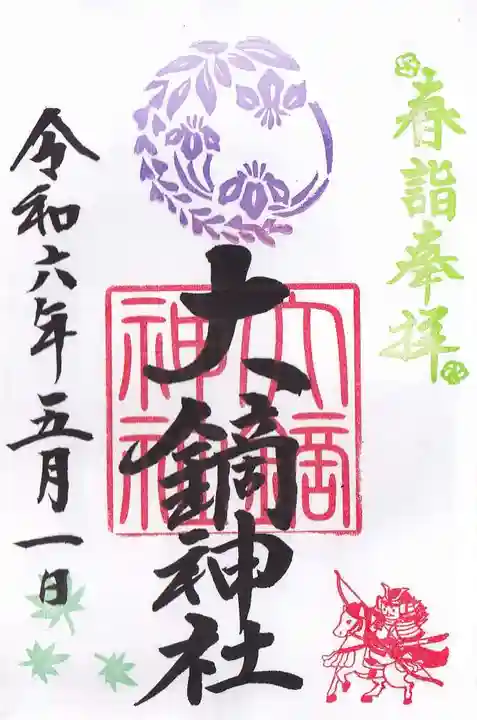 春詣奉拝
大鏑神社
大鏑神社
令和六年五月一日